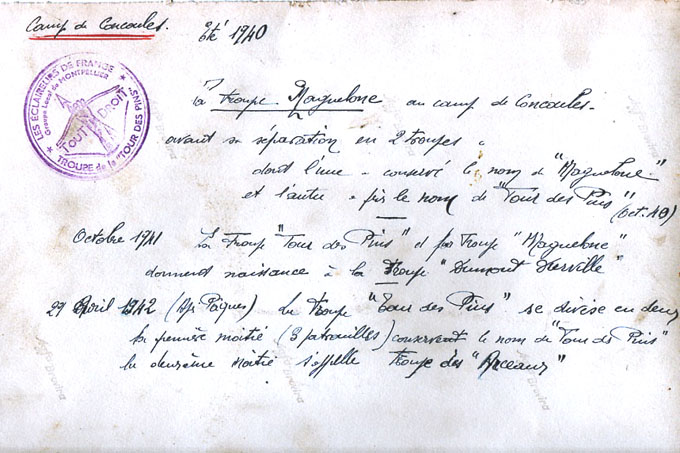 Camp de Concoules.
Eté 1940
LES ECLAIREURS DE FRANCE
Groupe Local de MONTPELLIER
TOUT DROIT
TROUPE de la "TOUR DES PINS"
la troupe Maguelone au camp de Concoules.
avant sa séparation en 2 troupes
dont l'une conservé le nom de "Maguelone"
et l'autre pris le nom de "Tour des Pins" (Oct. 40)
Octobre 1941 La Troupe "Tour des Pins" et troupe "Maguelone"
donnent naissance à la troupe "Dumont Durville"
29 Avril 1942 (Après Pâques) la Troupe "Tour des Pins" se divise en deux
la première moitié (3 patrouilles) conservent le nom de "Tour des Pins"
la deuxième moitié s'appelle Troupe des "Arceaux"